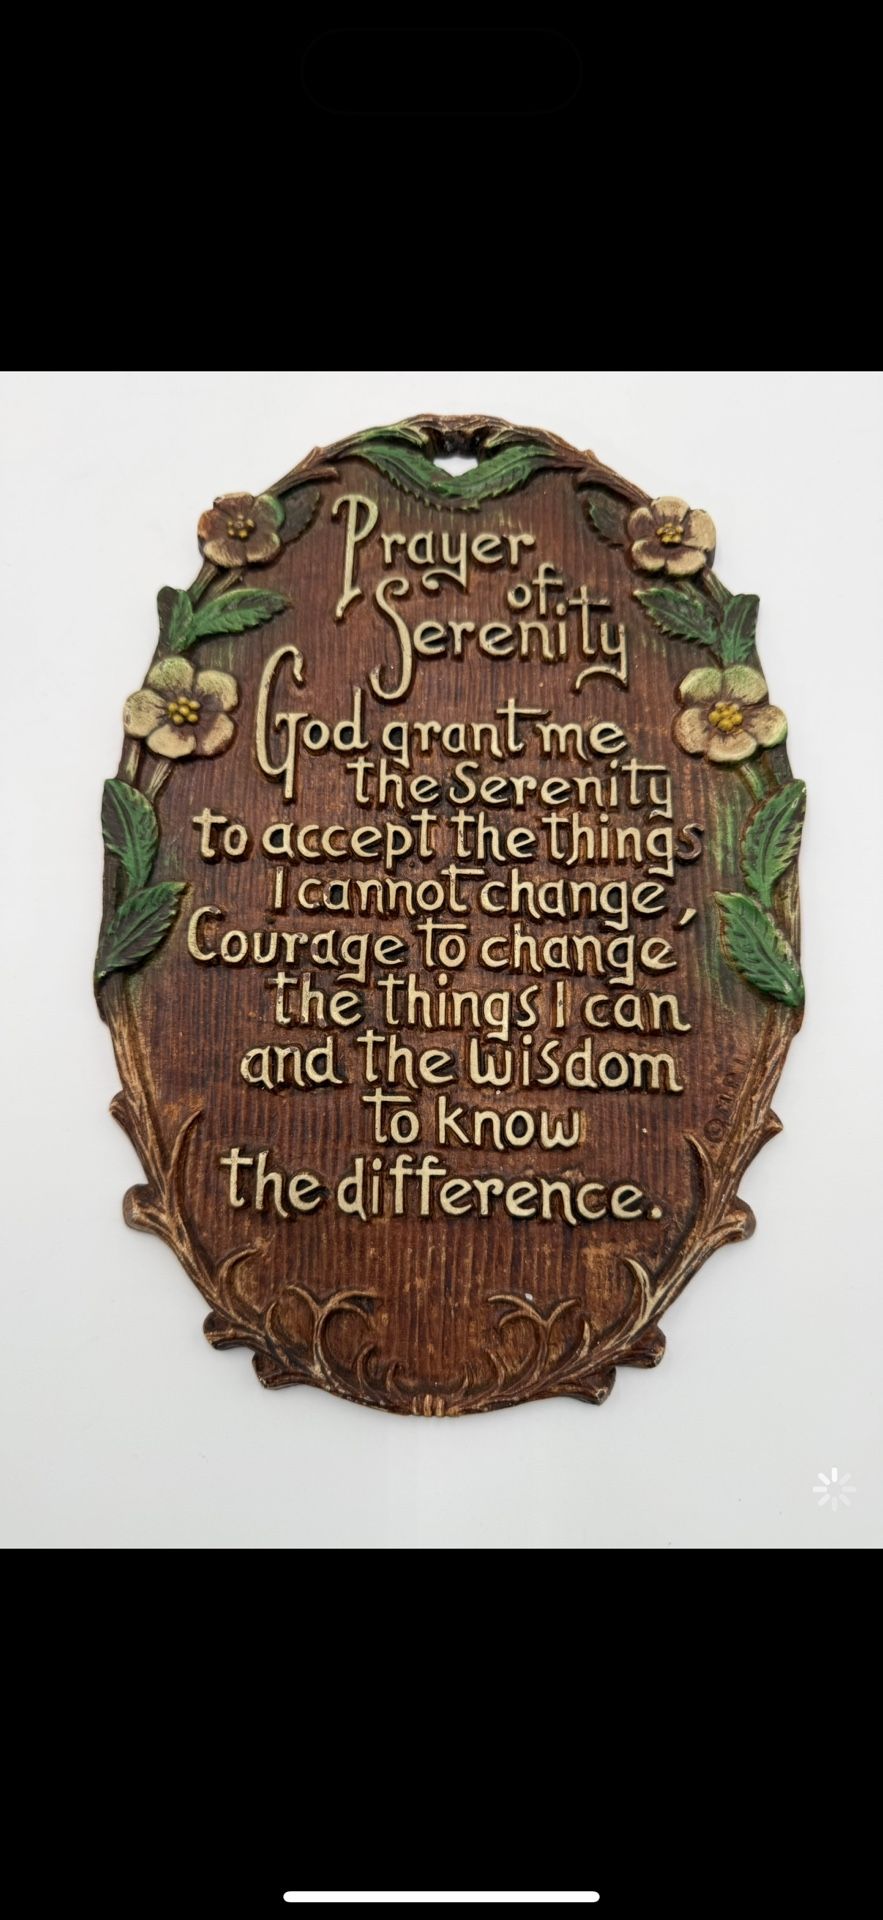 Prayer
of
Serenity
God grant me
the Serenity
to accept the things
I cannot change,
Courage to change
the things I can
and the wisdom
to know
the difference.